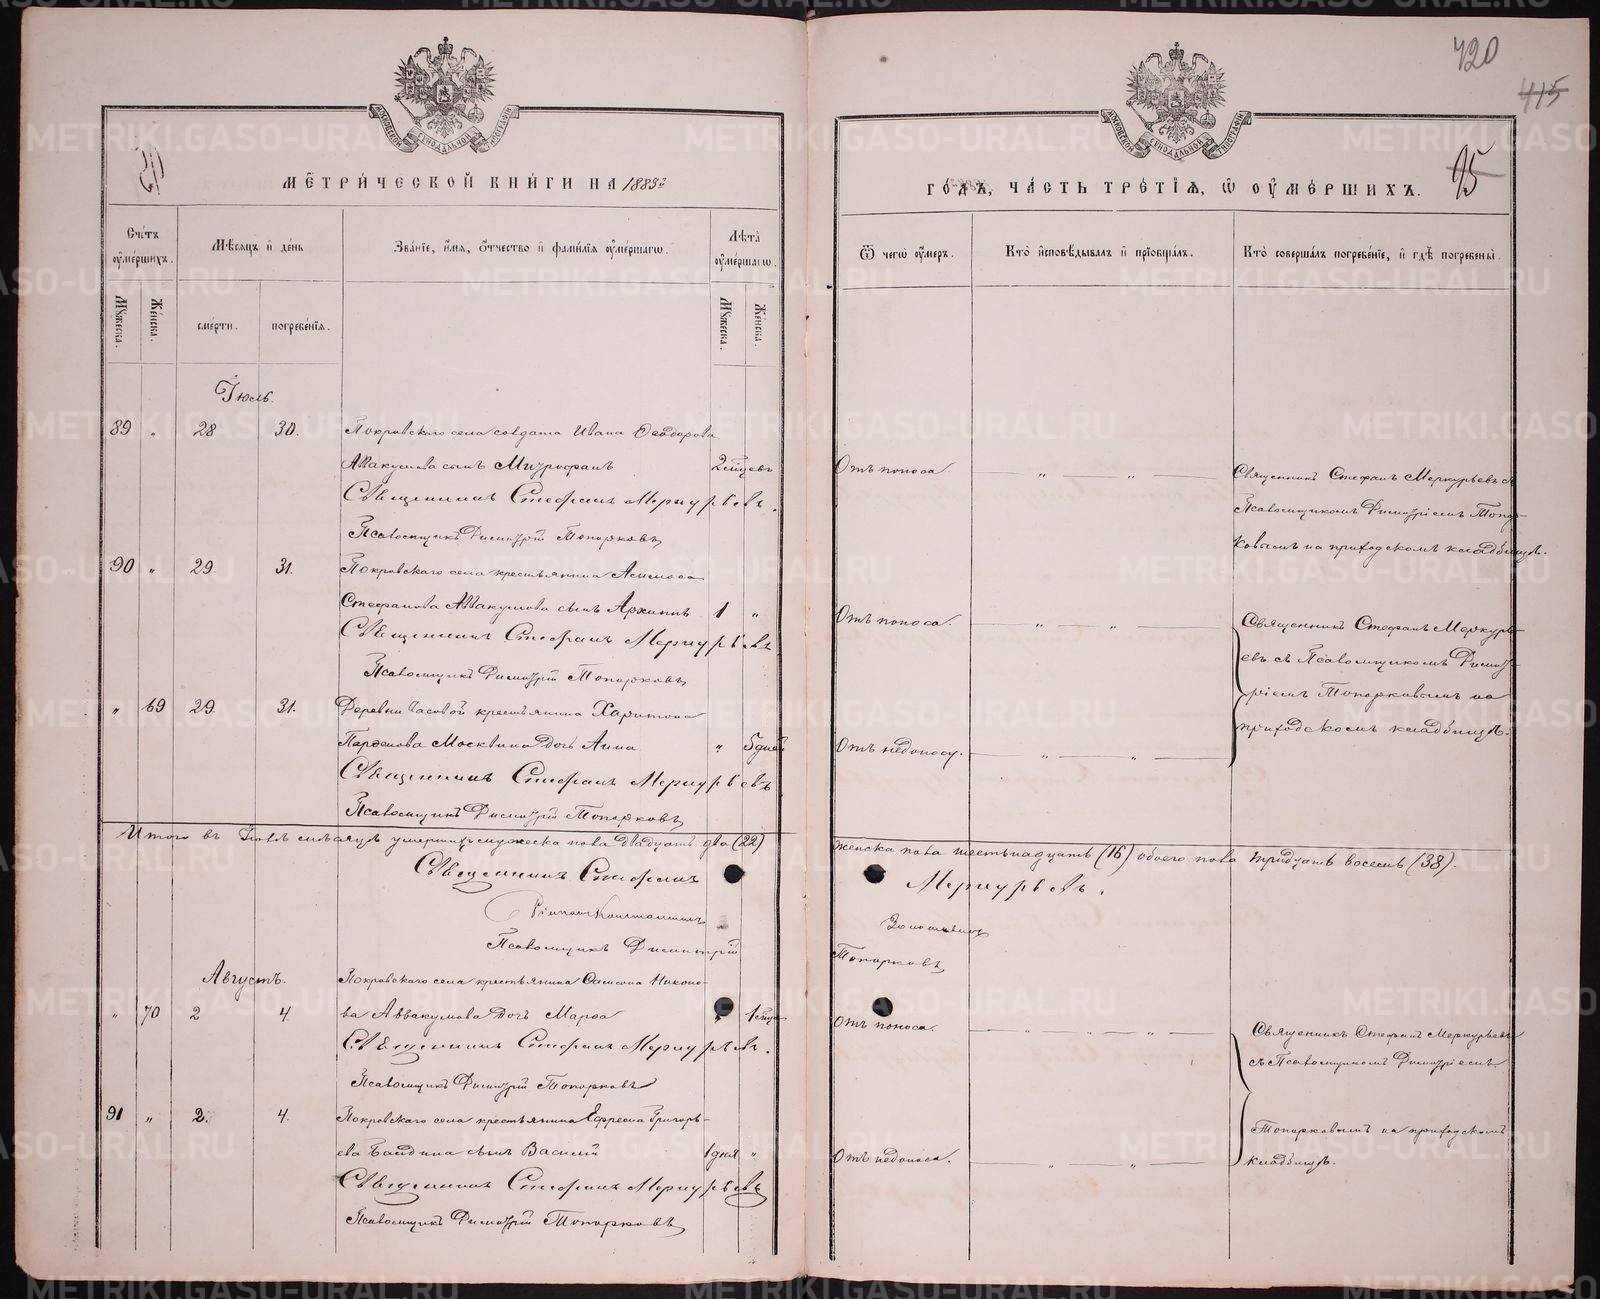 420
415
95
МЕТРИЧЕСКОЙ КНИГИ НА 1883й
ГОДЪ, ЧАСТЬ ТРЕТІЯ, Ѿ ОУМЕРШИХЪ.
Счетъ оумершихъ.
Мѣсяцъ и день
Званіе, имя, отчество и фамилія оумершагѡ.
Лѣта оумершагѡ.
Ѿ чегѡ оумеръ.
Кто исповѣдывалъ и пріобщалъ.
Кто совершалъ погребеніе, и гдѣ погребены.
Мужеска. Женска. смерти. погребенія. Мужеска. Женска.
Іюль.
89 " 28 30. Покровскаго села солдата Ивана Ѳеодорова
Аввакумова сынъ Митрофанъ 2 мѣсцевъ Отъ поноса. " " Священникъ Стефанъ Меркурьевъ съ
Священникъ Стефанъ Меркурьевъ.
Псаломщикомъ Димитріемъ Топор-
Псаломщикъ Димитрій Топорковъ
ковымъ на приходскомъ кладбищѣ.
90 " 29. 31. Покровскаго села крестьянина
Стефанова Аввакумова сынъ Архиппъ 1 " Отъ поноса. " " Священникъ Стефанъ Меркурь-
Священникъ Стефанъ Меркурьевъ
евъ съ Псаломщикомъ Димит-
Псаломщикъ Димитрій Топорковъ
ріемъ Топорковымъ на
" 69 29. 31. Деревни Часовой крестьянина Харитона
приходскомъ кладбищѣ.
Парѳенова Москвина дочь Анна " 5 дней Отъ недоносу. " "
Священникъ Стефанъ Меркурьевъ
Псаломщикъ Димитрій Топорковъ
Итого въ Іюлѣ мѣсяцѣ умершихъ мужеска пола двадцать два (22)
женска пола шестьнадцать (16) обоего пола тридцать восемь (38).
Священникъ Стефанъ Меркурьевъ.
Псаломщикъ Димитрій
Топорковъ
Августъ.
Покровскаго села крестьянина Самсона Никоно-
" 70 2 4. ва Аввакумова дочь Марѳа " 1 мѣсца Отъ поноса. " " Священникъ Стефанъ Меркурьевъ
Священникъ Стефанъ Меркурьевъ.
съ Псаломщикомъ Димитріемъ
Псаломщикъ Димитрій Топорковъ
91 " 2. 4. Покровскаго села крестьянина Ефрема Григорь-
Топорковымъ на приходскомъ
ева Бабкина сынъ Василій 1 дня " Отъ недоноса. " " кладбищѣ.
Священникъ Стефанъ Меркурьевъ
Псаломщикъ Димитрій Топорковъ
METRIKI.GASO-URAL.RU